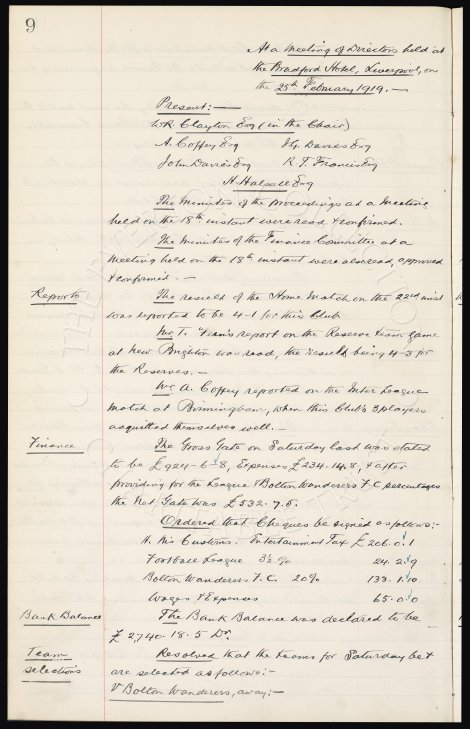 9
At a Meeting of Directors held at
the Bradford Hotel, Liverpool, on
the 25th February 1919. —
Present: —
W.R. Clayton Esq (in the Chair)
A. Coffey Esq J.G. Davies Esq
John Davies Esq R.T. Francis Esq
H. Halsall Esq
The Minutes of the Proceedings at a Meeting
held on the 18th instant were read & confirmed.
The minutes of the Finance Committee at a
Meeting held on the 18th instant were also read, approved
& confirmed. —
Reports The result of the Home Match on the 22nd inst
was reported to be 4-1 for this Club
Mr T. Fern's report on the Reserve team game
at New Brighton was read, the result being 4-3 for
the Reserves. —
Mr A. Coffey reported on the Inter League
match at Birmingham, when this Club's 3 players
acquitted themselves well. —
Finance The Gross Gate on Saturday last was stated
to be £924-6-8, Expenses £234.14.8, & after
providing for the League & Bolton Wanderers F.C. percentages
the Net Gate was £532.7.5.
Ordered that Cheques be signed as follows:-
H. M's Customs. Entertainment Tax £206.0.1
Football League 3½% 24.2.9
Bolton Wanderers F.C. 20% 133.1.10
Wages & Expenses 65.0.0
Bank Balance The Bank Balance was declared to be
£2,740.18.5 Dr.
Team Resolved that the teams for Saturday next
selections are selected as follows:-
V Bolton Wanderers, away:-